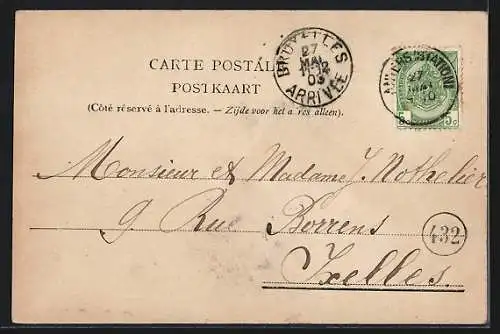 CARTE POSTALE
POSTKAART
(Côté réservé à l'adresse. — Zijde voor het adres alleen).
BRUXELLES
27
MAI
03
ARRIVÉE
ANVERS (STATION)
27
5c 5c
Monsieur et Madame J. Nothelier
9 Rue Borrens
432
Ixelles.